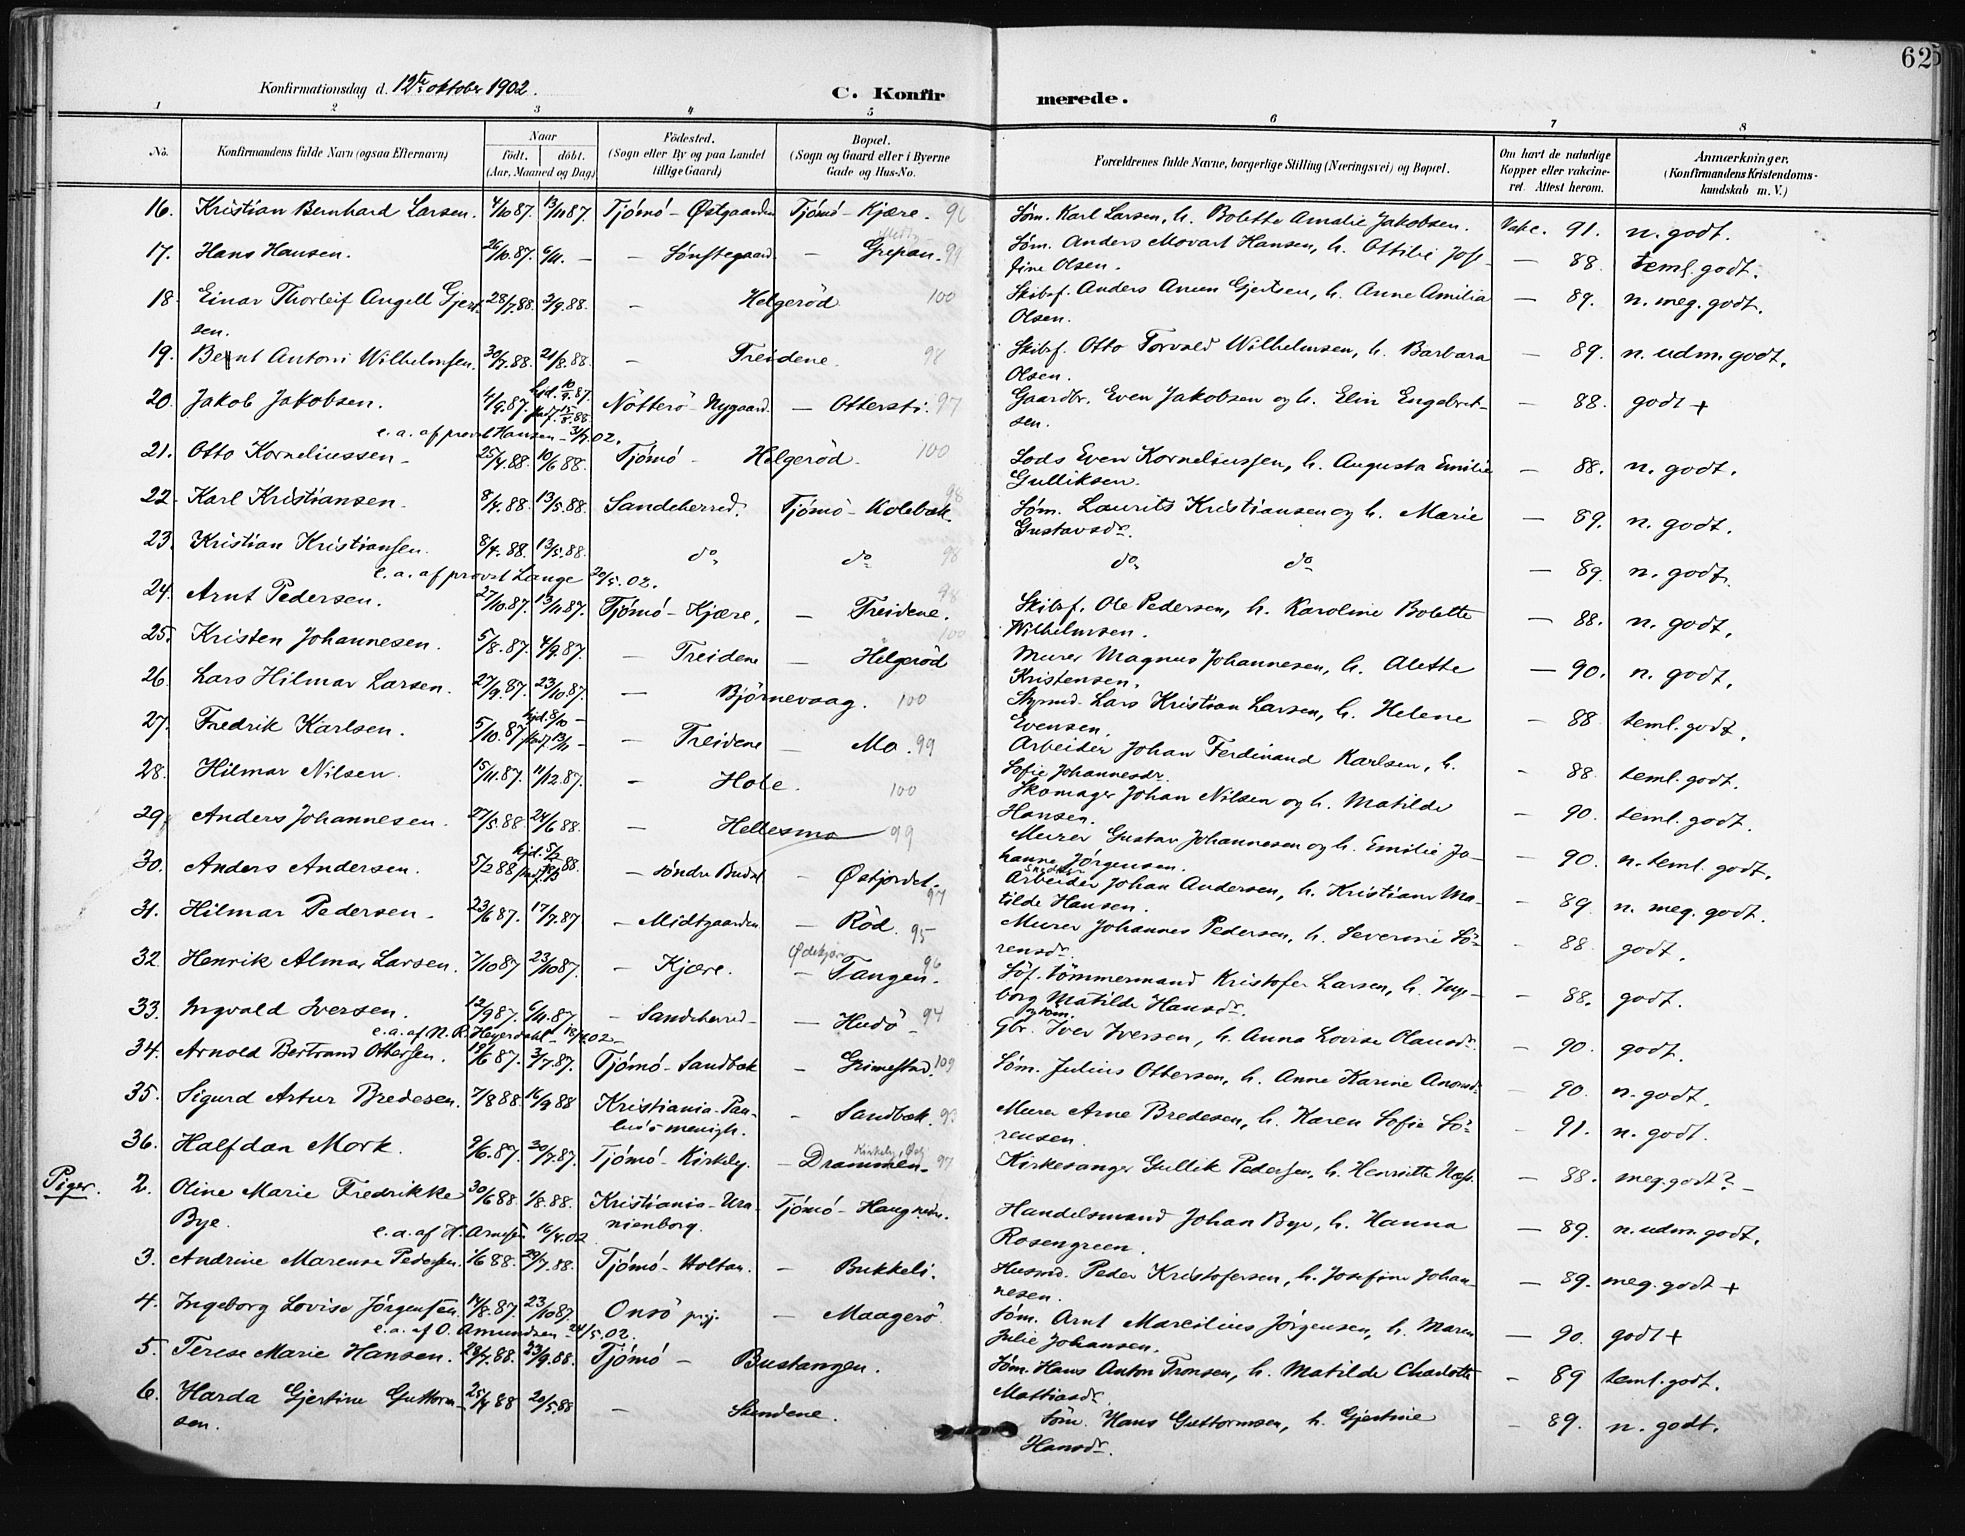 62
Konfirmationsdag d. 12te oktober 1902.
C. Konfirmerede.
1 2 3 4 5 6 7 8
No. Konfirmandens fulde Navn (ogsaa Efternavn) Naar födt. döbt. (Aar, Maaned og Dag) Födested. (Sogn eller By og paa Landet tillige Gaard) Bopæl. (Sogn og Gaard eller i Byerne Gade og Hus-No. Forældrenes fulde Navne, borgerlige Stilling (Næringsvei) og Bopæl. Om havt de naturlige Kopper eller vakcineret. Attest herom. Anmærkninger. (Konfirmandens Kristendomskundskab m. V.)
16. Kristian Bernhard Larsen. 4/10 87. 13/11 87. Tjömö - Østgaarden Tjömö - Kjære. 96 Söm. Karl Larsen, h. Bolette Amalie Jakobsen. Vakc. 91. n. godt.
17. Hans Hansen. 26/10.87. 6/11. — — Sönstegaard. — Grepan. 99 Söm. Anders Movart Hansen, h. Ottilie Josefine Olsen. — 88. teml. godt.
18. Einar Thorleif Angell Gjertsen. 28/7.88. 2/9.88. — Helgeröd 100 Skibsf. Anders Anton Gjertsen, h. Anne Amilia Olsen. — 89. n. meg. godt.
19. Bernt Antoni Wilhelmsen. 30/7.88. 21/8.88. — Treidene. 98 Skibsf. Otto Torvald Wilhelmsen, h. Barbara Olsen. — 89. n. udm. godt.
20. Jakob Jakobsen. 4/9.87. hjd. 10/9.87. Nötterö - Nygaard. — Ottersti. 97 Gaardbr. Even Jakobsen og h. Elin Engebretsen. — 88. godt +
e. a. af provst Hansen - 31/7.02.
21. Otto Korneliussen - 25/4.88. 10/6 88. Tjömö - Helgeröd. 100 Lods Even Korneliussen, h. Augusta Emilie Gulliksen. — 88. n. godt.
22. Karl Kristiansen. 8/4.88. 13/5.88. Sandeherred. Tjömö - Kolebæk. 98 Söm. Laurits Kristiansen og h. Marie Gustavsdr. — 89. n. godt.
23. Kristian Kristiansen. 8/4.88. 13/5.88. do do 98 do do — 89. n. godt.
e. a. af provst Lange 20/5.02.
24. Arnt Pedersen. 27/10.87. 13/11.87. Tjömö - Kjære. — Treidene. 98 Skibsf. Ole Pedersen, h. Karoline Bolette Wilhelmsen. — 88. n. godt.
25. Kristen Johannesen. 5/8.87. 4/9.87. — Treidene — Helgeröd 100 Murer Magnus Johannesen, h. Alette Kristensen. — 90. n. godt.
26. Lars Hilmar Larsen. 27/9.87. 23/10.87. — Bjömevaag. 100 Styrmd. Lars Kristian Larsen, h. Helene Evensen. — 88. teml. godt.
27. Fredrik Karlsen. 5/10.87 hjd. 8/10 — 13/11 — — Treidene — Mo. 99 Arbeider Johan Ferdinand Karlsen, h. Sofie Johannesdr. — 88. teml. godt.
28. Hilmar Nilsen. 15/11.87. 11/12.87. — Hole. 100 Skomager Johan Nilsen og h. Matilde Hansen. — 90. teml. godt.
29. Anders Johannesen. 27/5.88 24/6 88. — Hellesmo 99 Murer Gustav Johannesen og h. Emilie Johanne Jörgensen. — 90. n. teml. godt.
30. Anders Andersen. 5/2 88 hjd. 5/2 88. — söndre Budal — Østjordet. 97 Arbeider Johan Andersen, h. Kristiane Matilde Hansen. — 89. n. meg. godt.
31. Hilmar Pedersen. 23/6 87. 17/7.87 — Midtgaarden — Röd. 95 Murer Johannes Pedersen, h. Severine Sörensdr. — 88. godt.
32. Henrik Almar Larsen. 7/10 87 23/10 87. — Kjære. — Tangen. 96 Söf. tömmermand Kristofer Larsen, h. Ingeborg Matilde Hansdr. — 88. godt.
33. Ingvald Iversen. 12/9 87. 6/11.87. — Sandeherred — — Hudö - 94 Gbr. og söm. Iver Iversen, h. Anna Lovise Olausdr. — 90. godt.
e. a. af N. R. Heyerdahl
34. Arnold Bertrand Ottersen. 19/6 87. 3/7.87. Tjömö - Sandbæk — Grimestad. 109 Söm. Julius Ottersen, h. Anne Karine Anonsdr. — 90. n. godt.
35. Sigurd Artur Bredesen. 7/8 88. 16/9 88 Kristiania - Paulus's menigh. — Sandbæk. 93 Murer Arne Bredesen, h. Karen Sofie Sörensen. — 91. n. godt.
36. Halfdan Mork. 9/6.87. 30/7.87. Tjömö - Kirkeby. — Drammen. 97 Kirkesanger Gullik Pedersen, h. Henriette Næss. — 88. meg. godt? —
Piger.
2. Oline Marie Fredrikke Bye. 30/6 88. 1/8.88. Kristiania - Uranienborg. Tjömö - Haug Handelsmand Johan Bye, h. Hanna Rosengreen. — 89. n. udm. godt.
e. a. af H. Arnesen 16/4.02
3. Andrine Marensa Pedersen. 1/6 88. 29/7.88. Tjömö - Holtan. — Bukkeli. Husmd. Peder Kristofersen, h. Josefine Johannesen. — 89. meg. godt +
4. Ingeborg Lovise Jörgensen. 14/8.87. 23/10 87. Onsö prgj. — Maagerö. Söm. Arnt Marcilius Jörgensen, h. Maren Julie Johansen. — 90. godt +
e. a. af O. Amundsen 24/5.02.
5. Terese Marie Hansen. 28/7.88. 23/9.88. Tjömö — Bustangen. Söm. Hans Anton Tronsen, h. Matilde Charlotte Mattiasdr. — 89 teml. godt.
6. Harda Gjertine Guttormsen. 25/4 88 20/5.88 — Sundene. Söm. Hans Guttormsen, h. Gjertine Hansdr. — 89. n. godt.